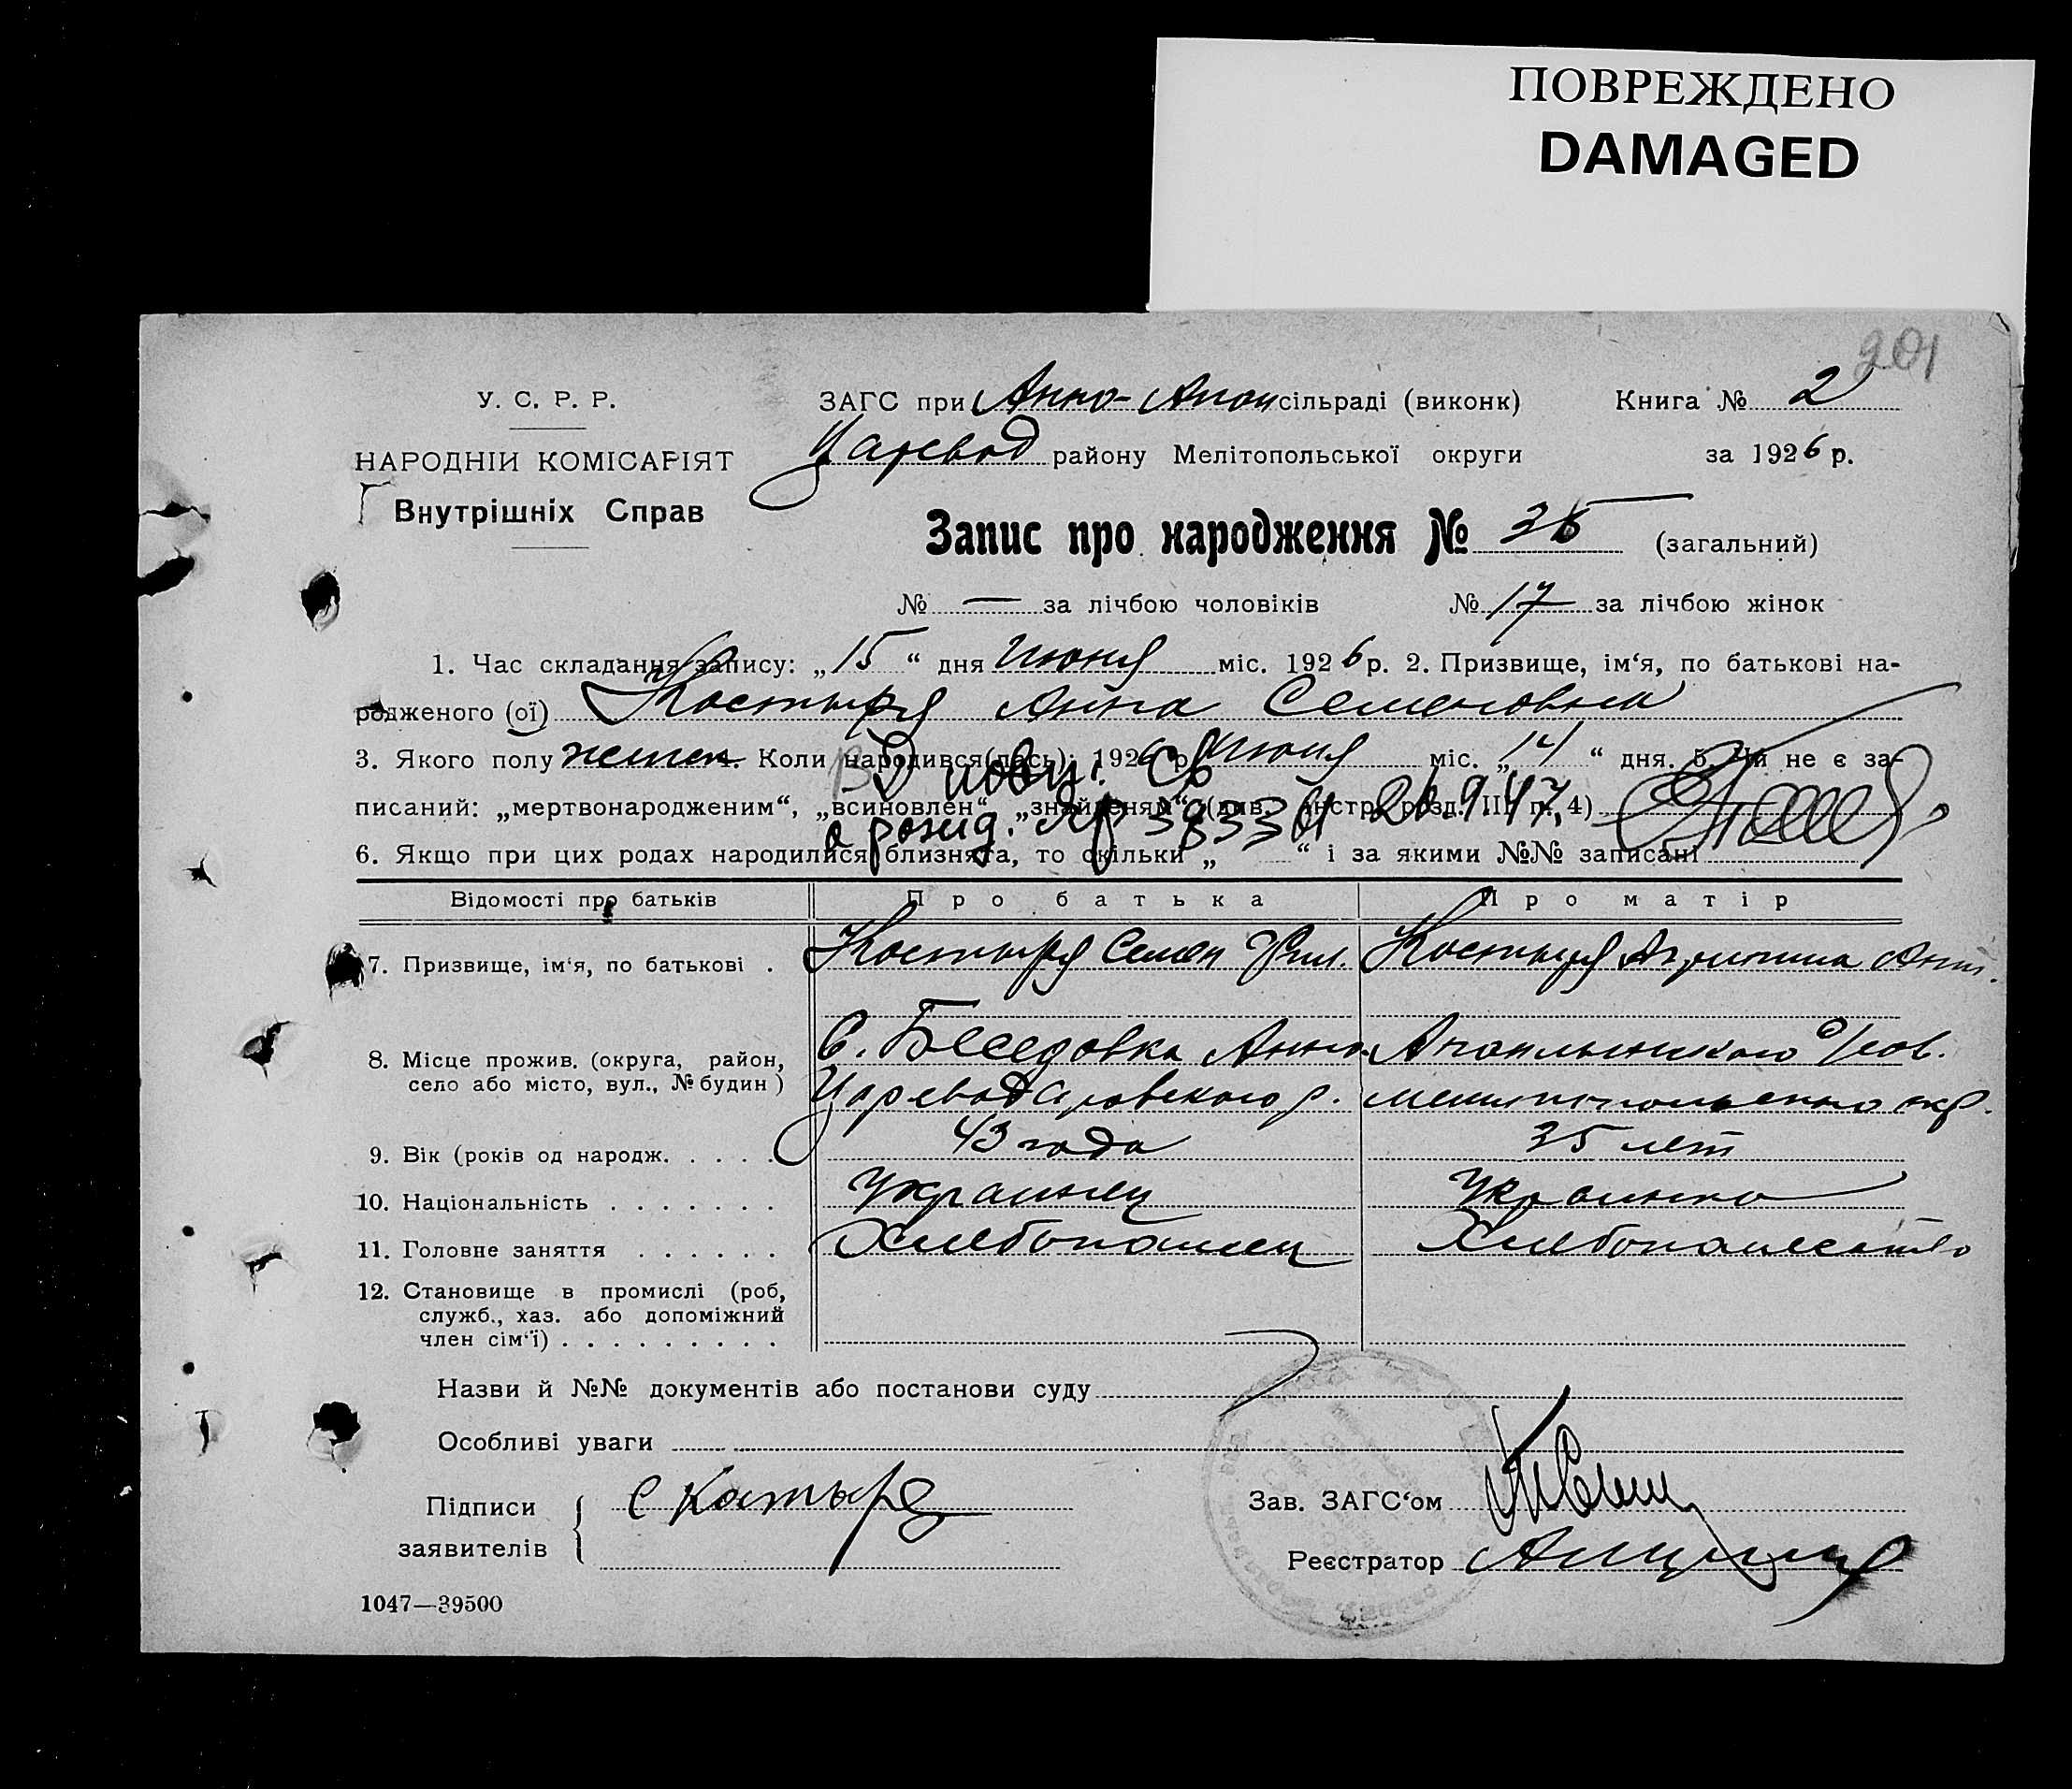 ПОВРЕЖДЕНО
DAMAGED
201
У. С. Р. Р.
НАРОДНІЙ КОМІСАРІЯТ
Внутрішніх Справ
ЗАГС при Анно-Апон сільраді (виконк) Книга № 2
Царевод району Мелітопольської округи за 1926 р.
Запис про народження № 35 (загальний)
№ — за лічбою чоловіків № 17 за лічбою жінок
1. Час складання запису: „15“ дня Июня міс. 1926 р. 2. Призвище, ім‘я, по батькові на-
родженого (ої) Костыря Анна Семеновна
3. Якого полу женск. 4. Коли народився(лась): 1926 р. Июня міс. „14“ дня. 5. Чи не є за-
писаний: „мертвонародженим“, „всиновлен“, „знайденям“, (див. інстр. розд. III п. 4)
Выд повт. Св
о рожд.
6. Якщо при цих родах народилися близнята, то скільки „ “ і за якими №№ записані
Відомості про батьків Про батька Про матір
7. Призвище, ім‘я, по батькові . Костыря Семен Костыря
8. Місце прожив. (округа, район, село або місто, вул., № будин) С. Беседовка Анно-
Царевода ровского р. Мелитопольского окр.
9. Вік (років од народж. . . . . 43 года 35 лет
10. Національність . . . . . . . Украинец Украинка
11. Головне заняття . . . . . . Хлебопашец Хлебопашество
12. Становище в промислі (роб,
служб., хаз. або допоміжний
член сім‘ї) . . . . . . . . .
Назви й №№ документів або постанови суду
Особливі уваги
Підписи
заявителів
С Костыря
Зав. ЗАГС‘ом
Реєстратор
1047—39500